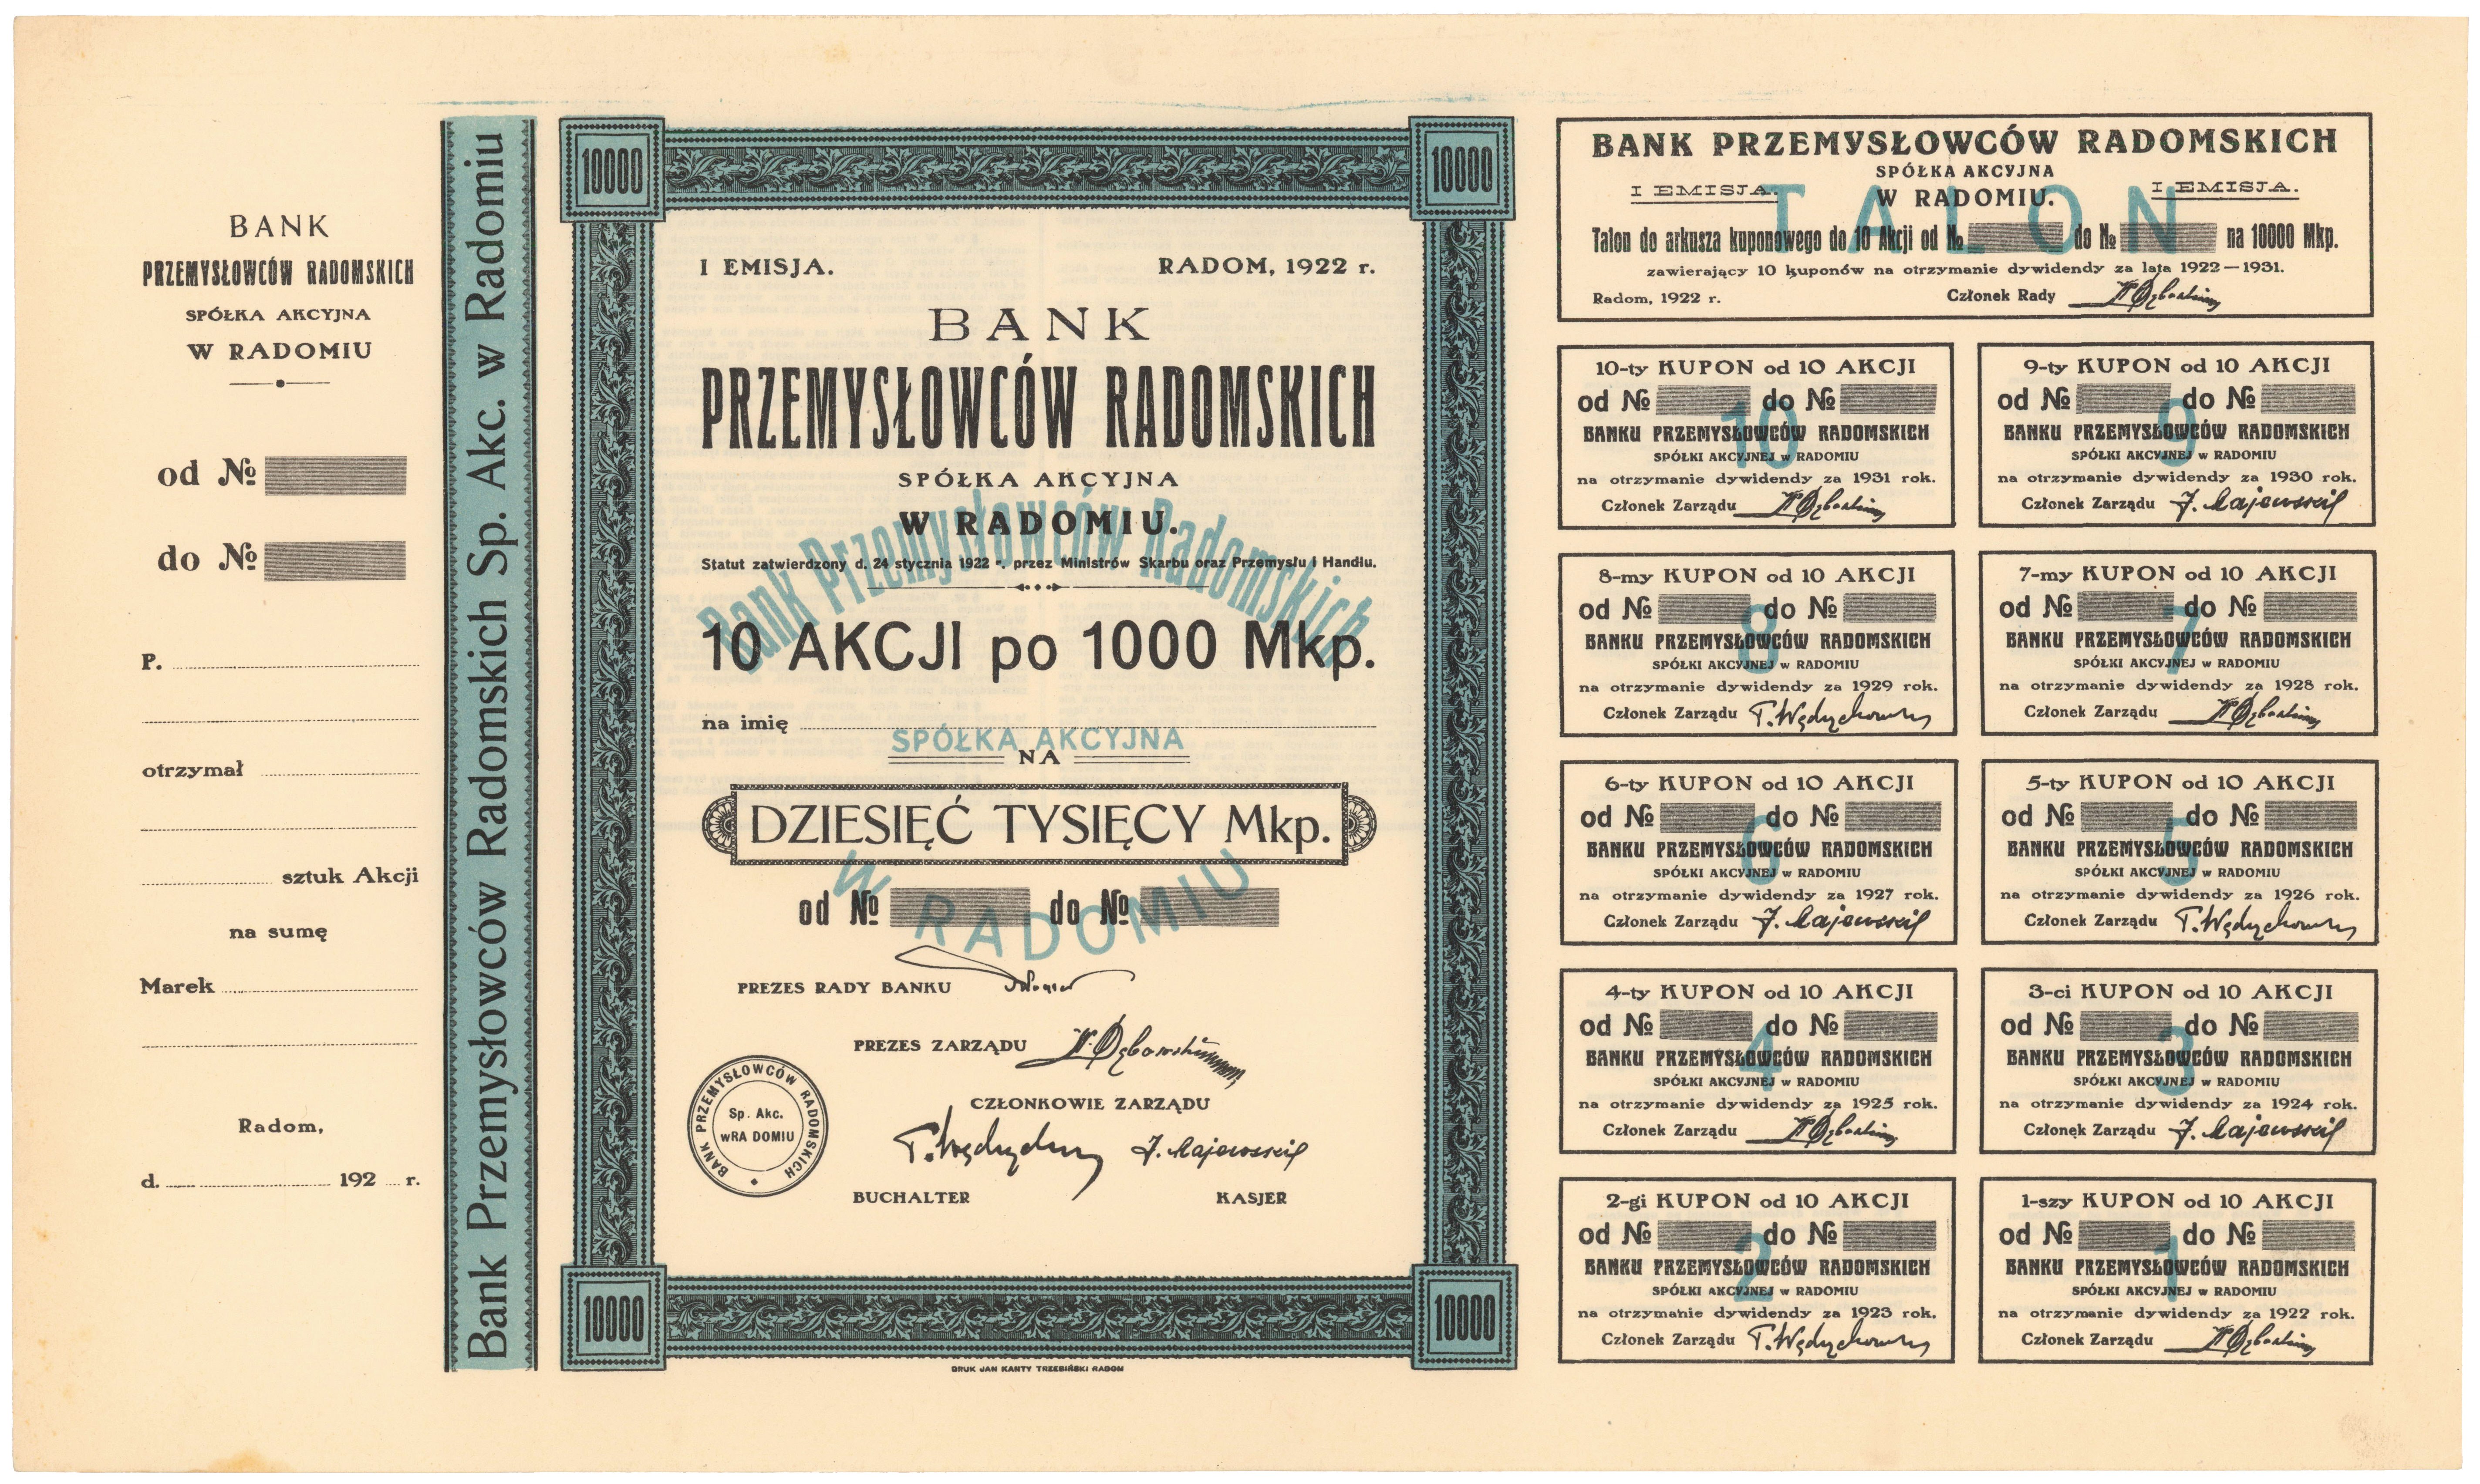 BANK
PRZEMYSŁOWCÓW RADOMSKICH
SPÓŁKA AKCYJNA
W RADOMIU
od №
do №
P.
otrzymał
sztuk Akcji
na sumę
Marek
Radom,
d. 192 r.
Bank Przemysłowców Radomskich Sp. Akc. w Radomiu
10000
10000
I EMISJA. RADOM, 1922 r.
BANK
PRZEMYSŁOWCÓW RADOMSKICH
SPÓŁKA AKCYJNA
W RADOMIU.
Bank Przemysłowców Radomskich
Statut zatwierdzony d. 24 stycznia 1922 r. przez Ministrów Skarbu oraz Przemysłu i Handlu.
10 AKCJI po 1000 Mkp.
na imię
SPÓŁKA AKCYJNA
NA
DZIESIĘĆ TYSIĘCY Mkp.
W RADOMIU
od № do №
PREZES RADY BANKU
PREZES ZARZĄDU
CZŁONKOWIE ZARZĄDU
J. Majewski
BANK PRZEMYSŁOWCÓW RADOMSKICH
Sp. Akc.
wRA DOMIU
BUCHALTER KASJER
10000
10000
DRUK JAN KANTY TRZEBIŃSKI RADOM
BANK PRZEMYSŁOWCÓW RADOMSKICH
SPÓŁKA AKCYJNA
I EMISJA. W RADOMIU. I EMISJA.
TALON
Talon do arkusza kuponowego do 10 Akcji od № do № na 10000 Mkp.
zawierający 10 kuponów na otrzymanie dywidendy za lata 1922—1931.
Radom, 1922 r. Członek Rady
10-ty KUPON od 10 AKCJI
od № do №
10
BANKU PRZEMYSŁOWCÓW RADOMSKICH
SPÓŁKI AKCYJNEJ w RADOMIU
na otrzymanie dywidendy za 1931 rok.
Członek Zarządu
9-ty KUPON od 10 AKCJI
od № do №
9
BANKU PRZEMYSŁOWCÓW RADOMSKICH
SPÓŁKI AKCYJNEJ w RADOMIU
na otrzymanie dywidendy za 1930 rok.
Członek Zarządu J. Majewski
8-my KUPON od 10 AKCJI
od № do №
8
BANKU PRZEMYSŁOWCÓW RADOMSKICH
SPÓŁKI AKCYJNEJ w RADOMIU
na otrzymanie dywidendy za 1929 rok.
Członek Zarządu
7-my KUPON od 10 AKCJI
od № do №
7
BANKU PRZEMYSŁOWCÓW RADOMSKICH
SPÓŁKI AKCYJNEJ w RADOMIU
na otrzymanie dywidendy za 1928 rok.
Członek Zarządu
6-ty KUPON od 10 AKCJI
od № do №
6
BANKU PRZEMYSŁOWCÓW RADOMSKICH
SPÓŁKI AKCYJNEJ w RADOMIU
na otrzymanie dywidendy za 1927 rok.
Członek Zarządu J. Majewski
5-ty KUPON od 10 AKCJI
od № do №
5
BANKU PRZEMYSŁOWCÓW RADOMSKICH
SPÓŁKI AKCYJNEJ w RADOMIU
na otrzymanie dywidendy za 1926 rok.
Członek Zarządu
4-ty KUPON od 10 AKCJI
od № do №
4
BANKU PRZEMYSŁOWCÓW RADOMSKICH
SPÓŁKI AKCYJNEJ w RADOMIU
na otrzymanie dywidendy za 1925 rok.
Członek Zarządu
3-ci KUPON od 10 AKCJI
od № do №
3
BANKU PRZEMYSŁOWCÓW RADOMSKICH
SPÓŁKI AKCYJNEJ w RADOMIU
na otrzymanie dywidendy za 1924 rok.
Członek Zarządu J. Majewski
2-gi KUPON od 10 AKCJI
od № do №
2
BANKU PRZEMYSŁOWCÓW RADOMSKICH
SPÓŁKI AKCYJNEJ w RADOMIU
na otrzymanie dywidendy za 1923 rok.
Członek Zarządu
1-szy KUPON od 10 AKCJI
od № do №
1
BANKU PRZEMYSŁOWCÓW RADOMSKICH
SPÓŁKI AKCYJNEJ w RADOMIU
na otrzymanie dywidendy za 1922 rok.
Członek Zarządu